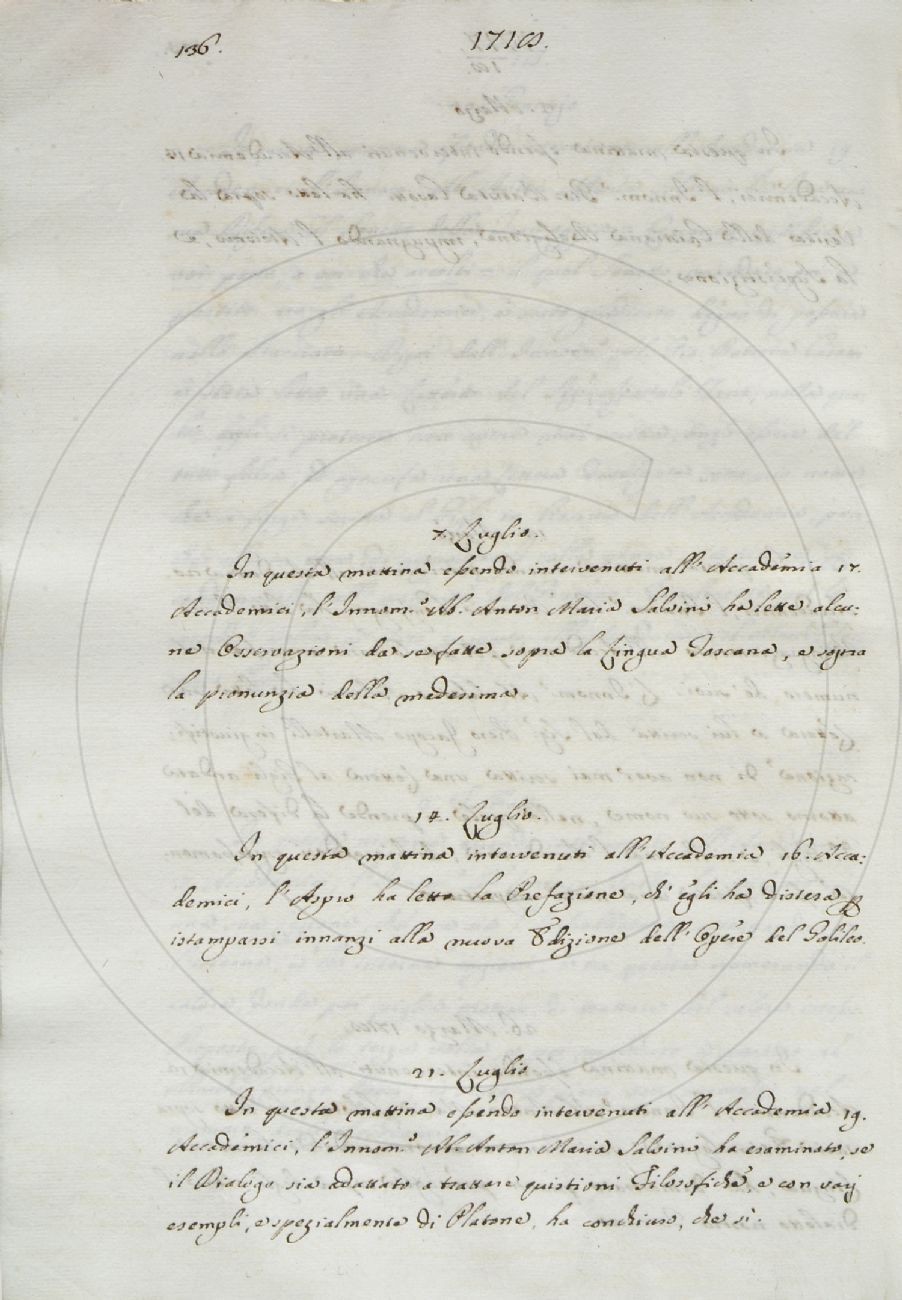 136.
1718.
7. Luglio.
In questa mattina essendo intervenuti all' Accademia 17.
Accademici, l'Innom.º Ab. Anton Maria Salvini ha lette alcu-
ne Osservazioni da se fatte sopra la Lingua Toscana, e sopra
la pronunzia della medesima
14. Luglio.
In questa mattina intervenuti all' Accademia 16. Acca-
demici, l' Aspro ha letto la Prefazione, ch' egli ha distesa p
istamparsi innanzi alla nuova Edizione dell' Opere del Galileo.
21. Luglio
In questa mattina essendo intervenuti all' Accademia 19.
Accademici, l'Innom.º Ab. Anton Maria Salvini ha esaminato, se
il Dialogo sia adattato a trattare quistioni Filosofiche, e con varj
esempli, e spezialmente di Platone, ha conchiuso, che sì.